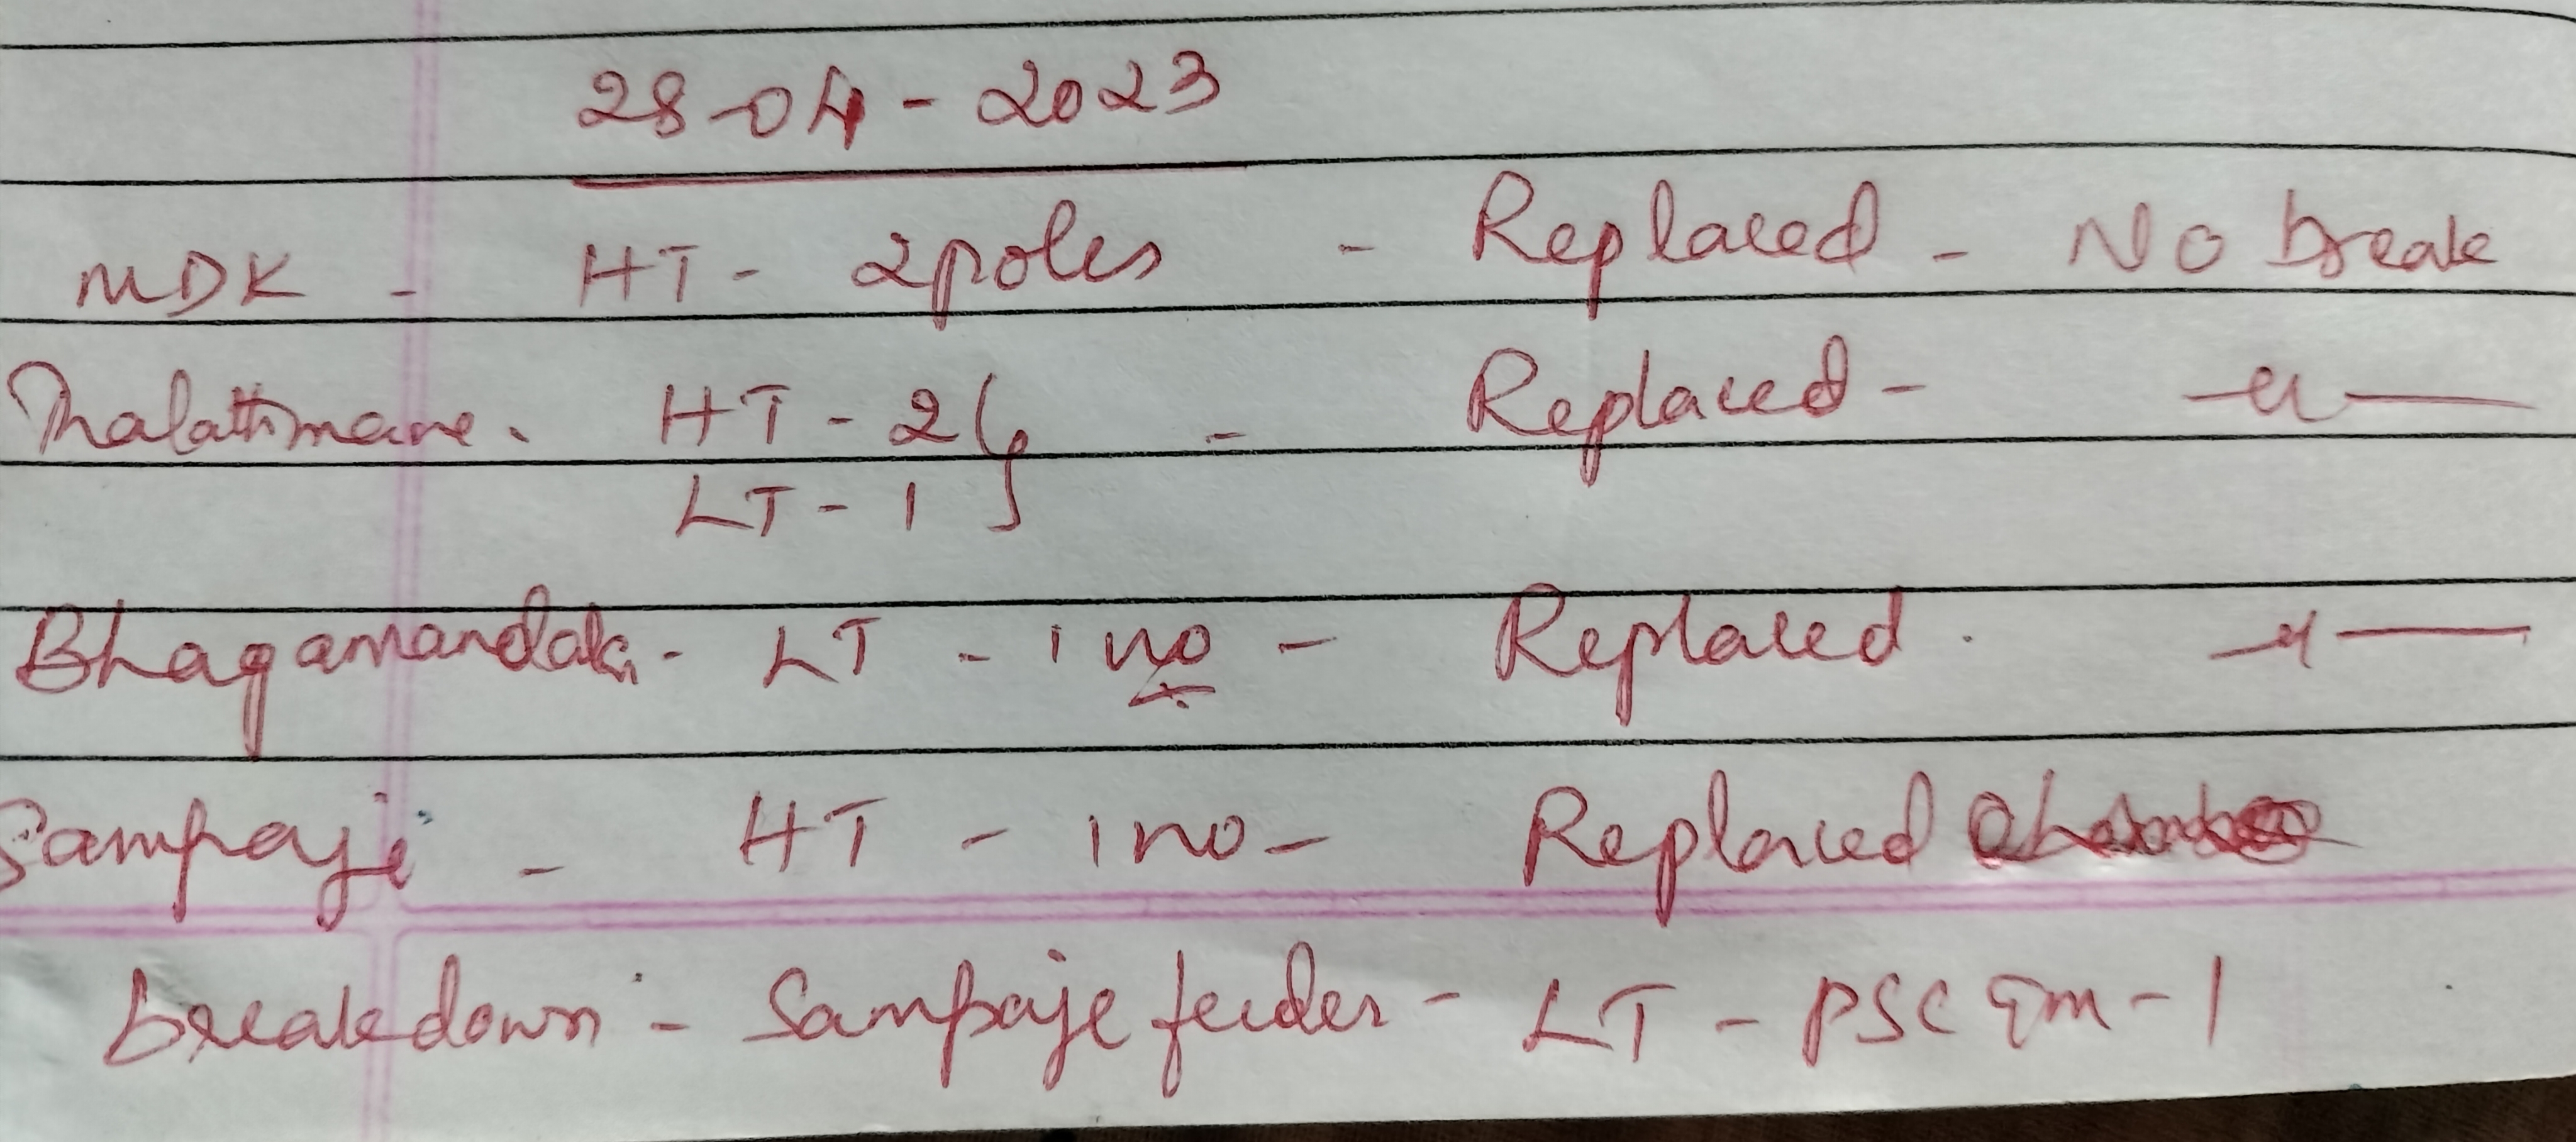 28-04-2023
MDK - HT - 2poles - Replaced - No break
Thalathmane. HT - 2 } - Replaced - -〃-
LT - 1
Bhagamandala - LT - 1 no - Replaced. -〃-
Sampaje - HT - 1 no - Replaced
breakdown - Sampaje feeder - LT - PSC 9m - 1